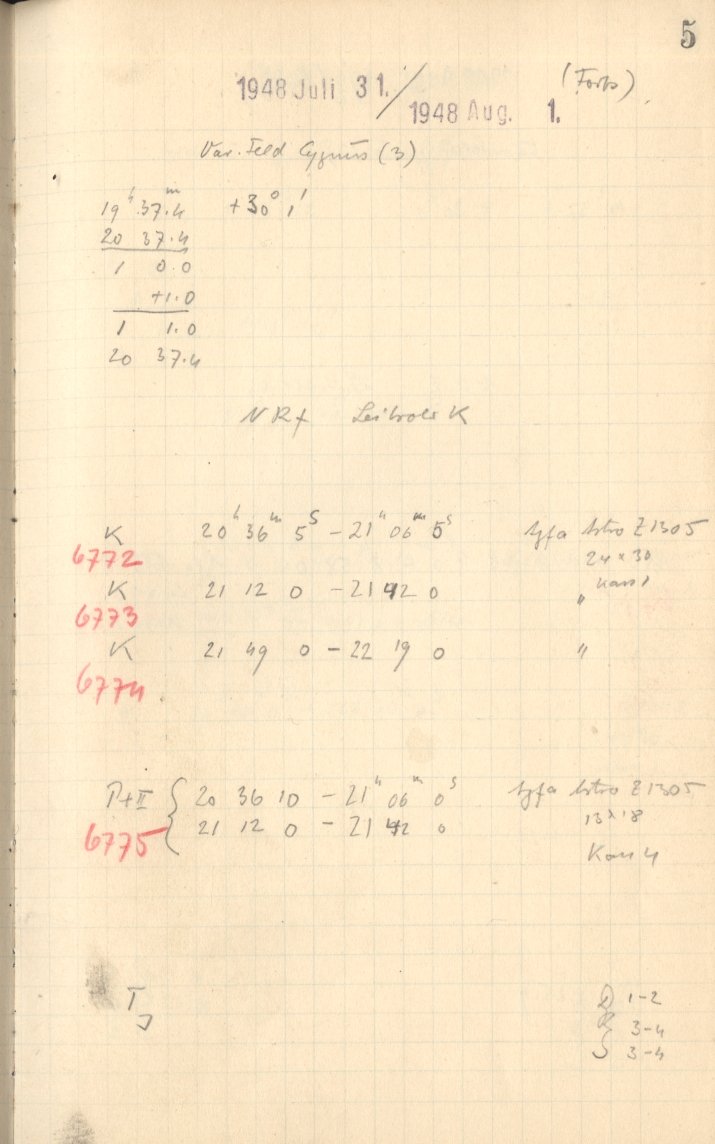 5
1948 Juli 31. / 1948 Aug. 1.
(Forts)
Var. Feld Cygnus (3)
19ʰ 37.4ᵐ +30° 1'
20 37.4
1 0.0
+1.0
1 1.0
20 37.4
K 20ʰ 36ᵐ 5ˢ – 21ʰ 06ᵐ 5ˢ Agfa Astro Z1305
6772 24 x 30
K 21 12 0 – 21 42 0 " Kass 1
6773
K 21 49 0 – 22 19 0 "
6774
20 36 10 – 21ʰ 06ᵐ 0ˢ Agfa Astro Z1305
6775 { 21 12 0 – 21 42 0 13 x 18
Kass 4
T
D 1-2
R 3-4
S 3-4